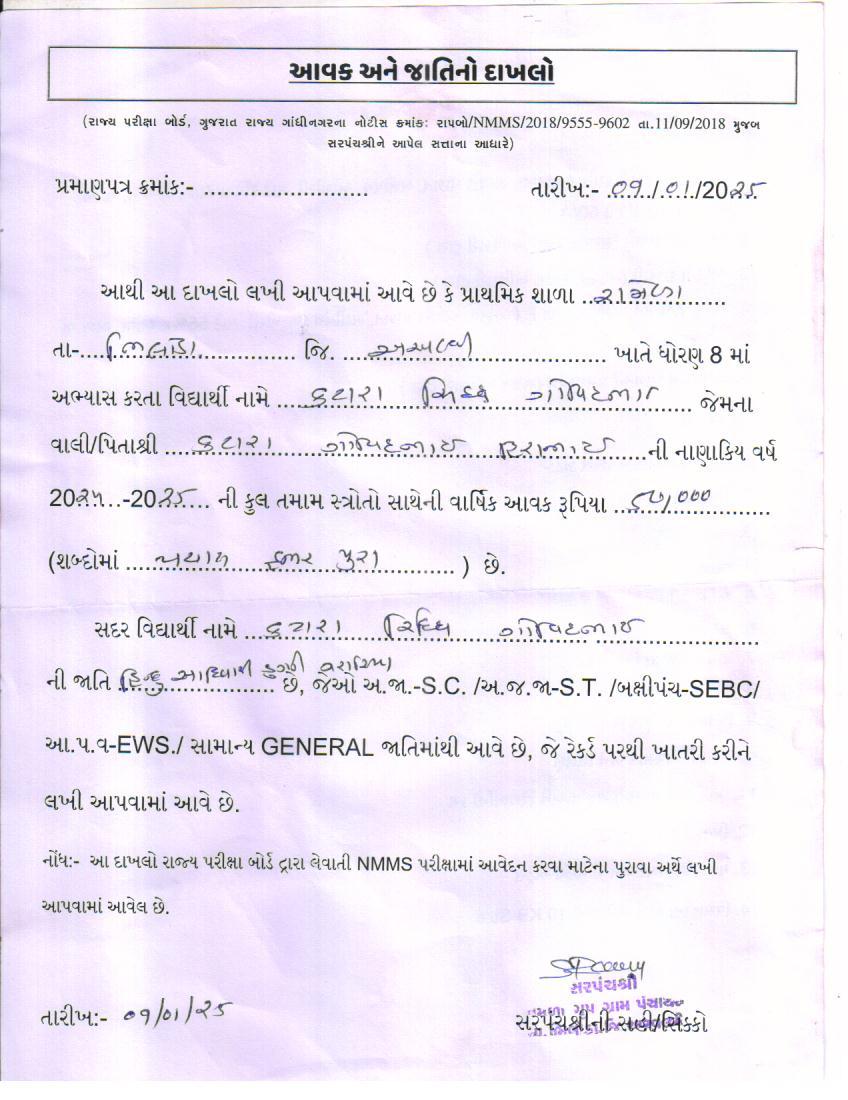 આવક અને જાતિનો દાખલો
(રાજ્ય પરીક્ષા બોર્ડ, ગુજરાત રાજ્ય ગાંધીનગરના નોટીસ ક્રમાંક: રાપબો/NMMS/2018/9555-9602 તા.11/09/2018 મુજબ
સરપંચશ્રીને આપેલ સત્તાના આધારે)
પ્રમાણપત્ર ક્રમાંક:- ........................ તારીખ:- 09/01/2025
આથી આ દાખલો લખી આપવામાં આવે છે કે પ્રાથમિક શાળા
તા- ભિલોડા જિ. અરવલ્લી ખાતે ધોરણ 8 માં
અભ્યાસ કરતા વિદ્યાર્થી નામે કટારા ગોવિંદભાઈ જેમના
વાલી/પિતાશ્રી કટારા ગોવિંદભાઈ ની નાણાકિય વર્ષ
2024-2025 ની કુલ તમામ સ્ત્રોતો સાથેની વાર્ષિક આવક રૂપિયા
(શબ્દોમાં હજાર પુરા ) છે.
સદર વિદ્યાર્થી નામે કટારા ગોવિંદભાઈ
ની જાતિ હિન્દુ આદિવાસી ડુંગરી ગરાસિયા છે, જેઓ અ.જા.-S.C. /અ.જ.જા-S.T. /બક્ષીપંચ-SEBC/
આ.પ.વ-EWS./ સામાન્ય GENERAL જાતિમાંથી આવે છે, જે રેકર્ડ પરથી ખાતરી કરીને
લખી આપવામાં આવે છે.
નોંધ:- આ દાખલો રાજ્ય પરીક્ષા બોર્ડ દ્વારા લેવાતી NMMS પરીક્ષામાં આવેદન કરવા માટેના પુરાવા અર્થે લખી
આપવામાં આવેલ છે.
સરપંચશ્રી
ગ્રુપ ગ્રામ પંચાયત
તારીખ:- 09/01/25 સરપંચશ્રીની સહી/સિક્કો